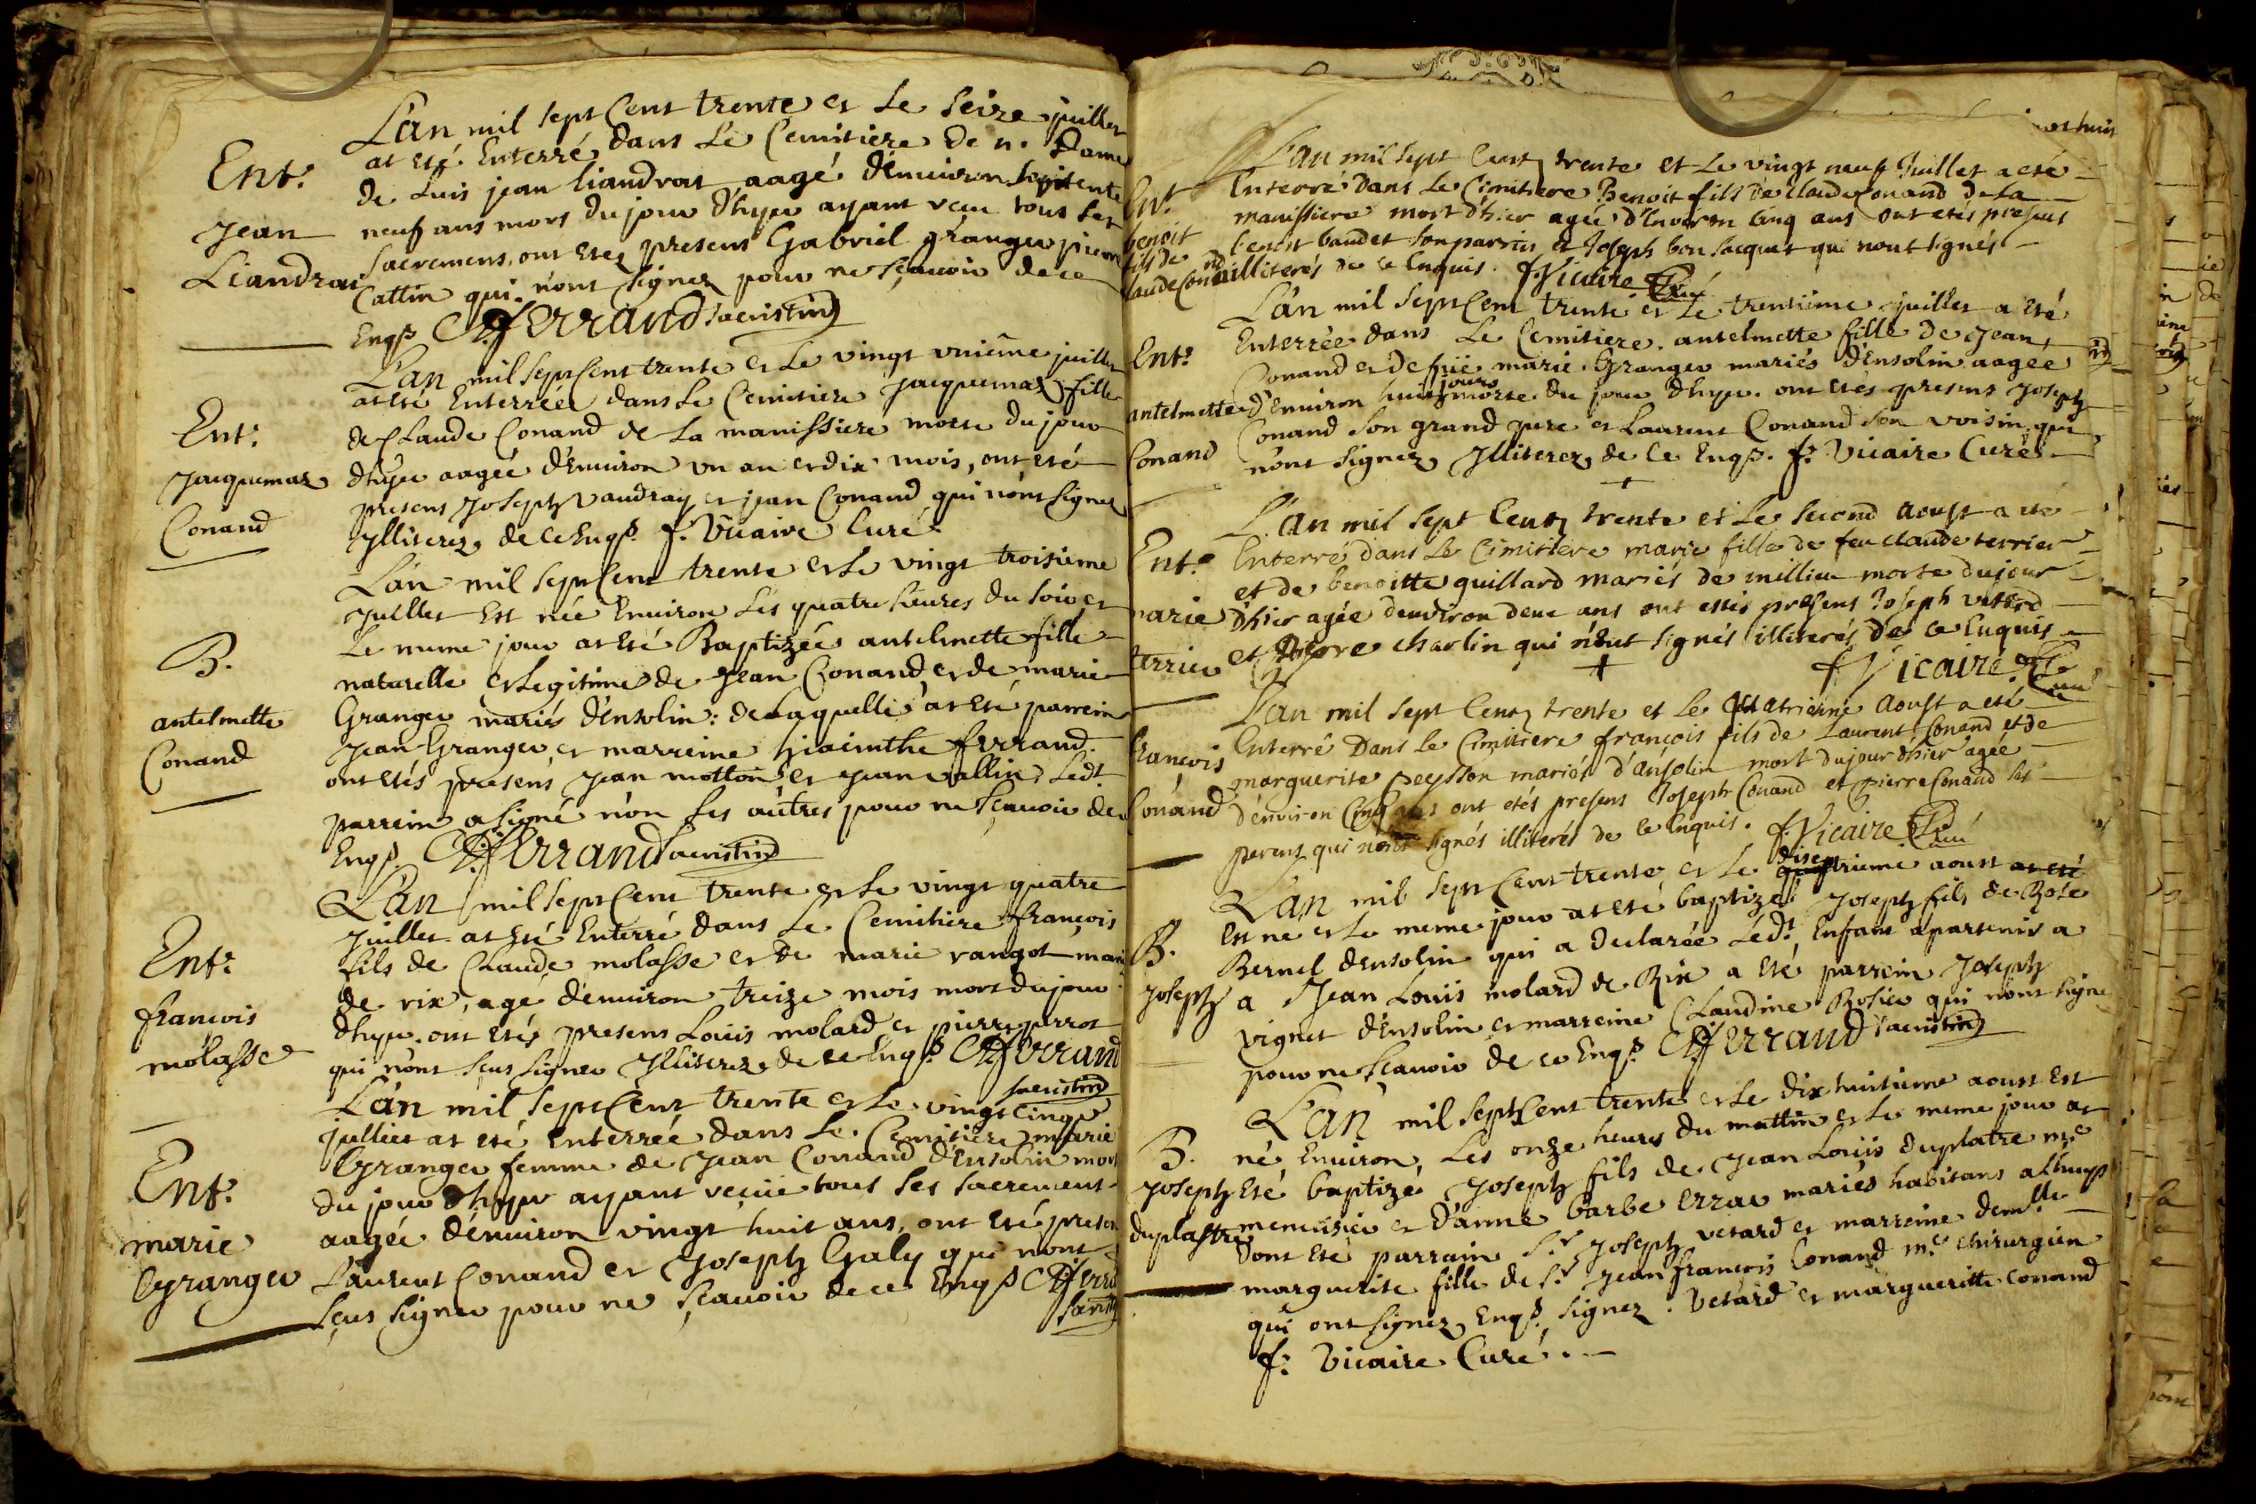 L'an mil sept Cent trente et le seize juillet
at eté Enterré dans Le Cemitiere de n. Dame
Ent.
de Luis jean liandrat aagé d'environ septente
Jean
neuf ans mort du jour d'hyer ayant receu tous les
Liandrat
Sacremens, ont etez presens Gabriel granger pierre
Cattin qui n'ont signez pour ne sçavoir de ce
Enqs. Ferrand sacristin
L'an mil sept Cent trente et le vingt unieme juillet
at eté Enterrée dans le Cemitiere Jacquemaz fille
Ent.
de Claude Conand de la manissiere morte du jour
Jacquemaz
d'hyer aagée d'Environ un an et dix mois, ont eté
Conand
presens Joseph vaudray et jean Conand qui n'ont signez
Illiterez de ce Enqs. f. Vicaire Curé
L'an mil sept Cent trente et le vingt troisieme
Juillet Est née Environ les quatre heures du soir et
B.
Le meme jour at eté Baptizée antelmette fille
naturelle et legitime de Jean Conand et de marie
antelmette
Granger mariés d'ensolin: de Laquelle at eté parrein
Conand
Jean Granger et marreine hiacinthe ferrand.
ont etés presens Jean motton et jean vallin Ledt
parrein a signé non les autres pour ne sçavoir de
Enqs. Ferrand sacristin
L'an mil sept Cent trente et le vingt quatre
Juillet at eté Enterré dans Le Cemitiere françois
Ent.
fils de Claude molasse et de marie rangot
françois
de rix, agé d'environ treize mois mort du jour
molasse
d'hyer. ont etés presens Louis molard et pierre perrot
qui n'ont sçus signer Illiterez de ce Enqs Ferrand
sacristin
L'an mil sept Cent trente et le vingt cinq
julliet at eté enterrée dans le Cemitiere marie
Ent.
Granger femme de Jean Conand d'Ensolin mort
marie
du jour d'hyer ayant reçüe tous les sacremens
Granger
aagée d'environ vingt huit ans, ont eté presens
Laurent Conand et Joseph Galy qui n'ont
sçus signer pour ne sçavoir de ce Enqs
L'an mil sept Cent trente et Le vingt neuf Juillet a eté
Ent.
Enterré dans Le Cimitiere Benoit fils de Claude Conand de La
benoit
manissiere mort d'hier agée d'Environ cinq ans ont etés presens
fils de
benoit baudet son parrin et Joseph bon Jacquet qui n'ont signés
illiterés de ce Enquis. f Vicaire Curé
L'an mil sept Cent trente et Le trentieme juillet a eté
Ent.
Enterrée dans Le Cemitiere antelmette fille de Jean
Conand et de füe marie Granger mariés d'Ensolin aagée
antelmette
d'Environ huit jours morte du jour d'hyer. ont etés presens Joseph
Conand
Conand son grand pere et Laurent Conand son voisin qui
n'ont signez Illiterez de Ce Enqs. f. Vicaire Curé
L'an mil sept Cent trente et Le second aoust a eté
Ent.
Enterré dans Le Cimitiere marie fille de feu claude terrier
et de benoitte guillard mariés de millieu morte du jour
marie
d'hier agée denviron deux ans ont estés presens Joseph vetard
terrier
et charlin qui n'ont signés illiterés de ce Enquis
f Vicaire Curé
L'an mil sept Cent trente et Le quatrieme aoust a eté
françois
Enterré Dans Le Cimitiere françois fils de Laurent Conand et de
marguerite peysson mariés d'ansolin mort du jour d'hier agée
Conand
d'environ cinq ont etés presens Joseph Conand et pierre Conand ses
perens qui n'ont signés illiterés de ce Enquis. f. Vicaire Curé
L'an mil sept Cent trente et Le disept aoust at eté
B.
Est né et le meme jour at eté baptizé Joseph fils de Rose
Bernel d'ensolin qui a declarée Ledt Enfant apartenir a
Joseph
a Jean Louis molard de Rix a eté parrein Joseph
vignet d'ensolin et marreine Claudine Rosier qui n'ont signé
pour ne sçavoir de ce Enqs. Ferrand sacristin
L'an mil sept Cent trente et le dix huitieme aoust Est
B.
né Environ Les onze heures du mattin et le meme jour at
Joseph
Eté baptizé Joseph fils de Jean Louis duplatre me
duplastre
menuisier et d'anne barbe errar mariés habitans a
dont eté parrain Sr Joseph vetard et marreine demlle
marguerite fille de Sr Jean françois Conand me chirurgien
qui ont signez Enqs. signez. Vetard et margueritte Conand
f. Vicaire Curé.